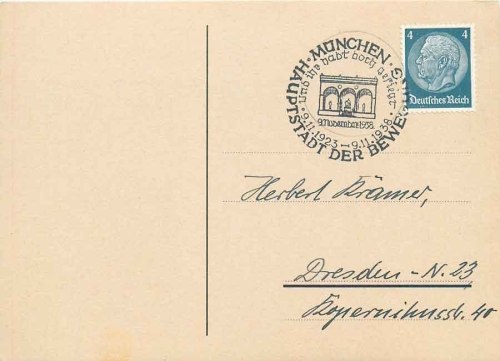 MÜNCHEN · HAUPTSTADT DER BEWEGUNG ·
Und ihr habt doch gesiegt ·
9. November 1938.
9.11.1923 — 9.11.1938
4 4
Deutsches Reich
Herbert Krämer,
Dresden-N. 23
Kopernikusstr. 40